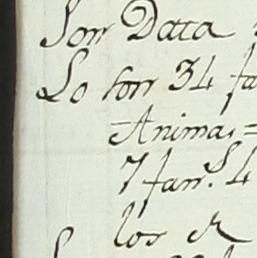 Son Data
Lo son 34 fa
Animas =
7 fan.s 4
los